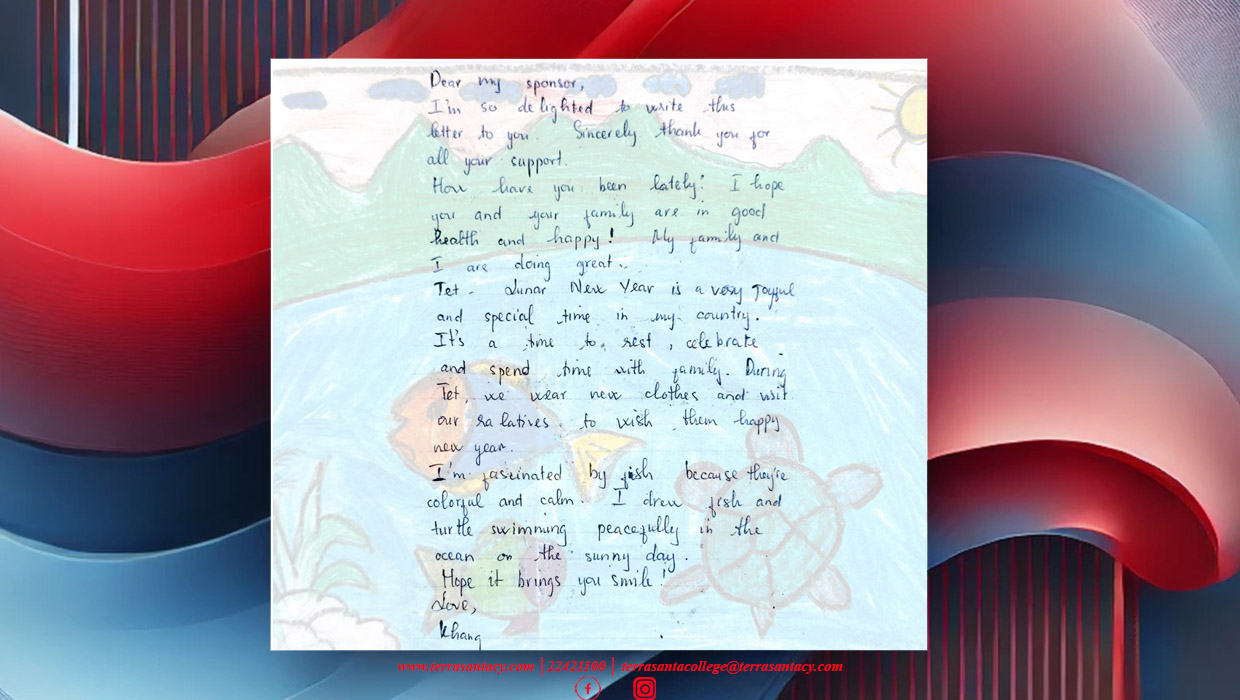 Dear my sponsor,
I'm so delighted to write this
letter to you. Sincerely thank you for
all your support.
How have you been lately? I hope
you and your family are in good
health and happy! My family and
I are doing great.
Tet - Lunar New Year is a very joyful
and special time in my country.
It's a time to rest, celebrate
and spend time with family. During
Tet, we wear new clothes and visit
our ralatives to wish them happy
new year.
I'm fascinated by fish because they're
colorful and calm. I drew fish and
turtle swimming peacefully in the
ocean on the sunny day.
Hope it brings you smile!
Love,
Khang
www.terrasantacy.com | 22421100 | terrasantacollege@terrasantacy.com